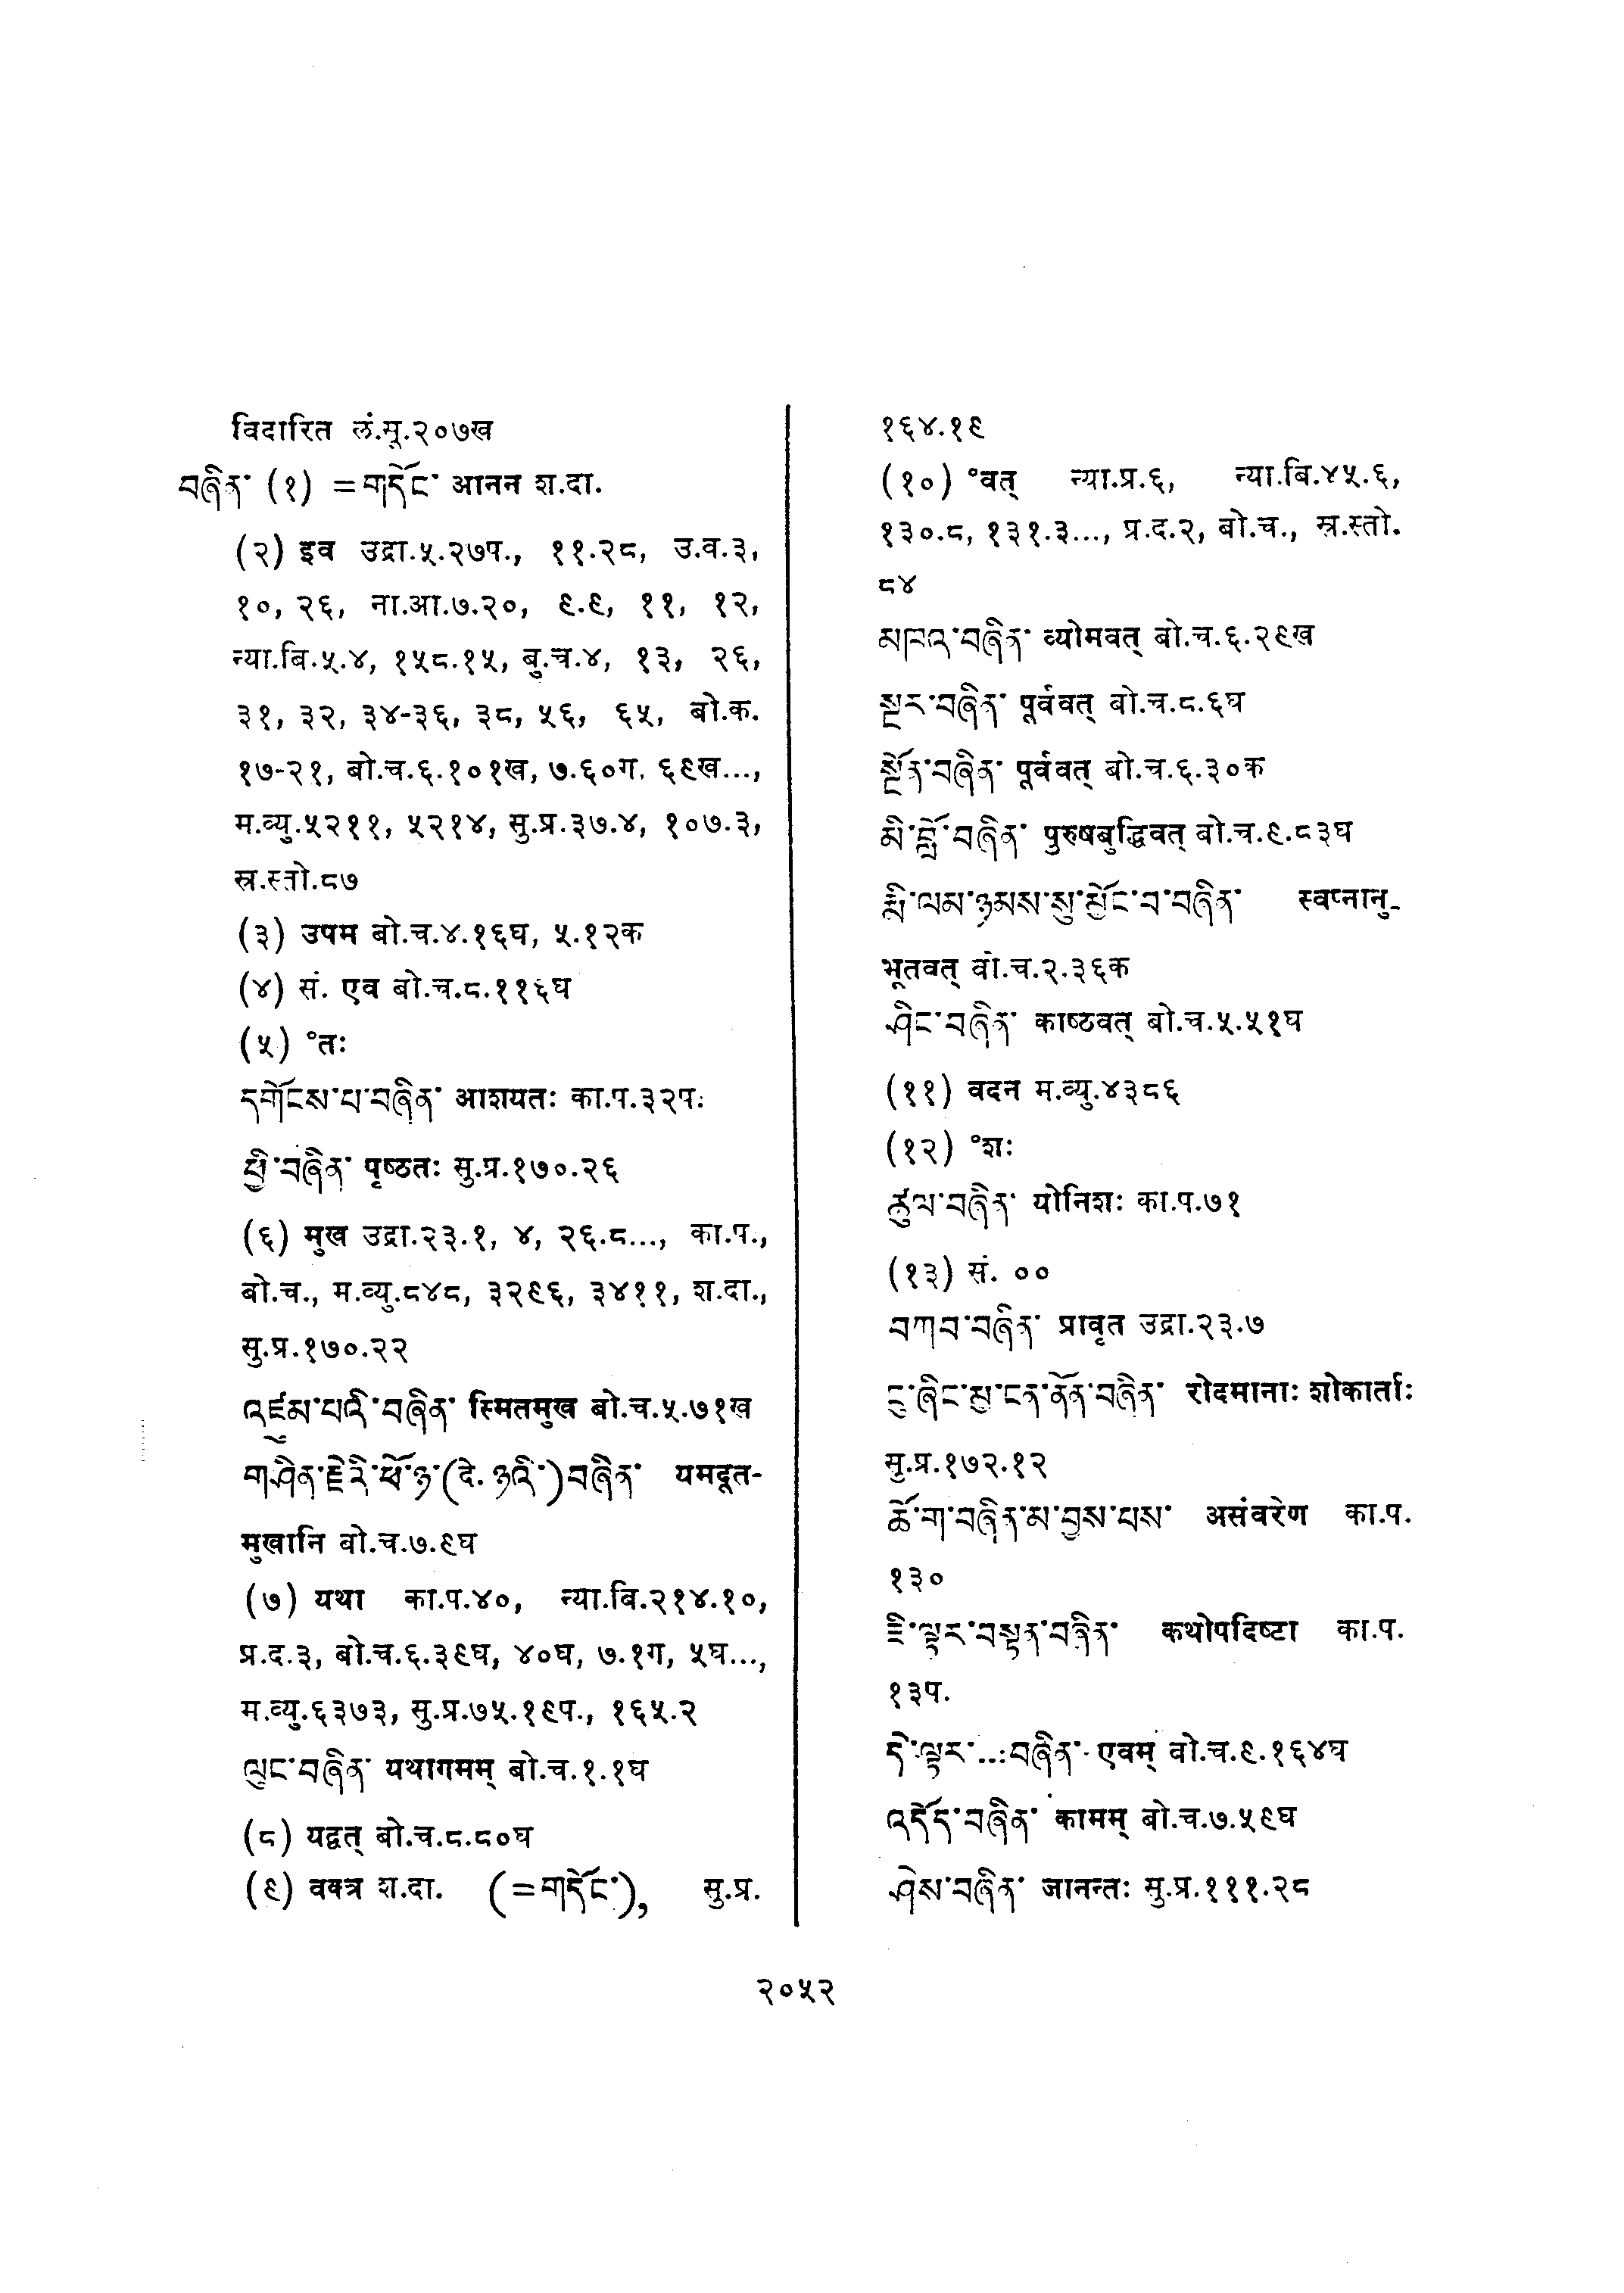 विदारित लं.मू.२०७ख
བཞིན་ (१) =གདོང་ आनन श.दा.
(२) इव उद्रा.५.२७प., ११.२८, उ.व.३,
१०, २६, ना.आ.७.२०, ९.९, ११, १२,
न्या.बि.५.४, १५८.१५, बु.च.४, १३, २६,
३१, ३२, ३४-३६, ३८, ५६, ६५, बो.क.
१७-२१, बो.च.६.१०१ख, ७.६०ग, ६९ख...,
म.व्यु.५२११, ५२१४, सु.प्र.३७.४, १०७.३,
स्र.स्तो.८७
(३) उपम बो.च.४.१६घ, ५.१२क
(४) सं. एव बो.च.८.११६घ
(५) °तः
དགོངས་པ་བཞིན་ आशयतः का.प.३२प.
ཕྱི་བཞིན་ पृष्ठतः सु.प्र.१७०.२६
(६) मुख उद्रा.२३.१, ४, २६.८..., का.प.,
बो.च., म.व्यु.८४८, ३२९६, ३४११, श.दा.,
सु.प्र.१७०.२२
འཛུམ་པའི་བཞིན་ स्मितमुख बो.च.५.७१ख
གཤིན་རྗེའི་ཕོ་ཉ་(दे. ཉའི་)བཞིན་ यमदूत-
मुखानि बो.च.७.९घ
(७) यथा का.प.४०, न्या.बि.२१४.१०,
प्र.द.३, बो.च.६.३९घ, ४०घ, ७.१ग, ५घ...,
म.व्यु.६३७३, सु.प्र.७५.१९प., १६५.२
ལུང་བཞིན་ यथागमम् बो.च.१.१घ
(८) यद्वत् बो.च.८.८०घ
(९) वक्त्र श.दा. (=གདོང་), सु.प्र.
१६४.१९
(१०) °वत् न्या.प्र.६, न्या.बि.४५.६,
१३०.८, १३१.३..., प्र.द.२, बो.च., स्र.स्तो.
८४
མཁའ་བཞིན་ व्योमवत् बो.च.६.२९ख
སྔར་བཞིན་ पूर्ववत् बो.च.८.६घ
སྔོན་བཞིན་ पूर्ववत् बो.च.६.३०क
མི་བློ་བཞིན་ पुरुषबुद्धिवत् बो.च.९.८३घ
རྨི་ལམ་ཉམས་སུ་མྱོང་བ་བཞིན་ स्वप्नानु-
भूतवत् बो.च.२.३६क
ཤིང་བཞིན་ काष्ठवत् बो.च.५.५१घ
(११) वदन म.व्यु.४३८६
(१२) °शः
ཚུལ་བཞིན་ योनिशः का.प.७१
(१३) सं. ००
བཀབ་བཞིན་ प्रावृत उद्रा.२३.७
ངུ་ཞིང་མྱ་ངན་ནོན་བཞིན་ रोदमानाः शोकार्ताः
सु.प्र.१७२.१२
ཆོ་ག་བཞིན་མ་བྱས་པས་ असंवरेण का.प.
१३०
ཇི་ལྟར་བསྟན་བཞིན་ कथोपदिष्टा का.प.
१३प.
དེ་ལྟར་...བཞིན་ एवम् बो.च.९.१६४घ
འདོད་བཞིན་ कामम् बो.च.७.५९घ
ཤེས་བཞིན་ जानन्तः सु.प्र.१११.२८
२०५२